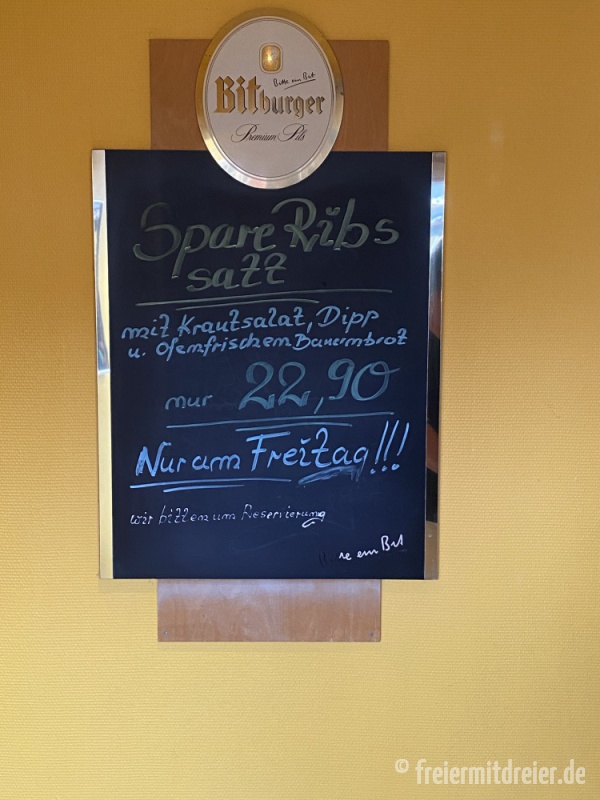 Bitte ein Bit
Bitburger
Premium Pils
Spare Ribs
satt
mit Krautsalat, Dipp
u. Ofenfrischem Bauernbrot
nur 22,90
Nur am Freitag!!!
wir bitten um Reservierung
ein Bit
© freiermitdreier.de